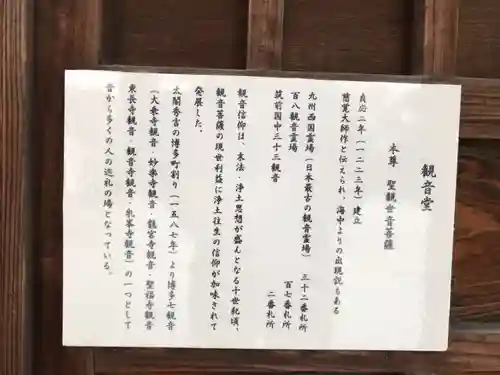 観音堂
本尊 聖観世音菩薩
貞応二年(一二二三年)建立
慈覚大師作と伝えられ、海中よりの出現説もある
九州西国霊場(日本最古の観音霊場) 三十二番札所
百八観音霊場 百七番札所
筑前国中三十三観音 二番札所
観音信仰は、末法・浄土思想が盛んとなる十世紀頃、
観音菩薩の現世利益に浄土往生の信仰が加味されて
発展した。
太閤秀吉の博多町割り(一五八七年)より博多七観音
(大乗寺観音・妙楽寺観音・龍宮寺観音・聖福寺観音
東長寺観音・観音寺観音・乳峯寺観音)の一つとして
昔から多くの人の巡礼の場となっている。